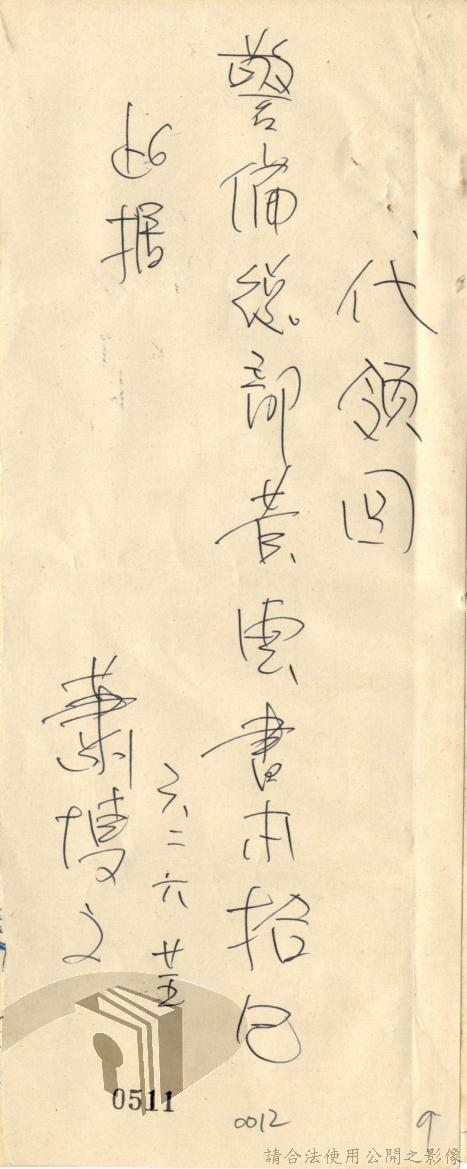 代領回
警備總部黃雲書本拾包
此据
蕭博文
六二六廿五
0511
0012
9
請合法使用公開之影像